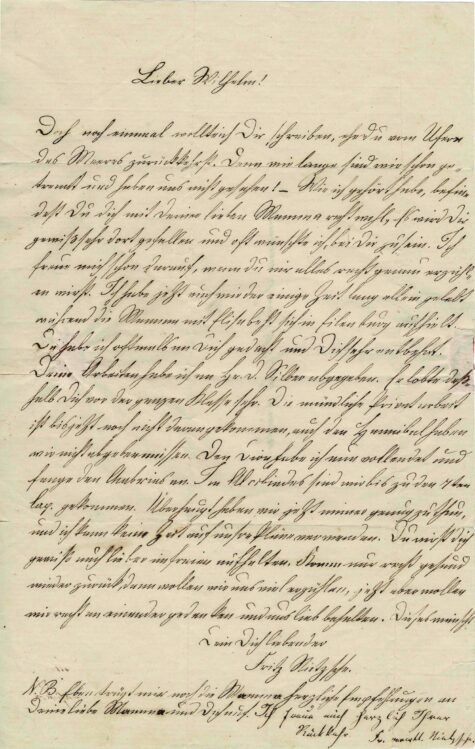 Lieber Wilhelm!
Doch noch einmal wollte ich Dir schreiben, ehe du vom Ufer
des Meeres zurückkehrst. Denn wie lange sind wir schon ge-
trennt und haben uns nicht gesehen! – Wie ich gehört habe, befin-
dest Du dich mit Deiner lieben Mamma recht wohl, Es wird Dir
gewiß sehr dort gefallen und oft wünschte ich, bei dir zu sein. Ich
freue mich schon darauf, wenn du mir alles recht genau erzähl-
en wirst. Ich habe jetzt auch wieder einige Zeit lang allein gelebt
während die Mamma mit Elisabeth sich in Eilenburg aufhielt
Da habe ich oftmals an Dich gedacht und Dich sehr entbehrt.
Deine Arbeiten habe ich an Hr. D. Silber abgegeben. Er lobte des-
halb Dich vor der ganzen Klasse sehr. Die mündliche Privatarbeit
ist bis jetzt noch nicht daran gekommen, auch den Hannibal haben
wir nicht abgeben müssen. Den Dion habe ich nun vollendet und
fange den Chabrias an. Im sind wir bis zu der 7ten
gekommen. Überhaupt haben wir jetzt immer genug zu thun,
und ich kann keine Zeit auf unsre verwenden. Du wirst dich
gewiß auch lieber im freien aufhalten. Komm nur recht gesund
wieder zurück dann wollen wir uns viel erzählen, jetzt aber wollen
wir recht an einander gedenken und uns lieb behalten. Dieses wünscht
Dein Dich liebender
Fritz Nietzsche.
N.B. Eben trägt mir noch die Mamma herzliche Empfehlungen an
Deine liebe Mamma und Dich auf. Ich freue mich herzlich Ihrer
Rückkehr. Fr. Nietzsche